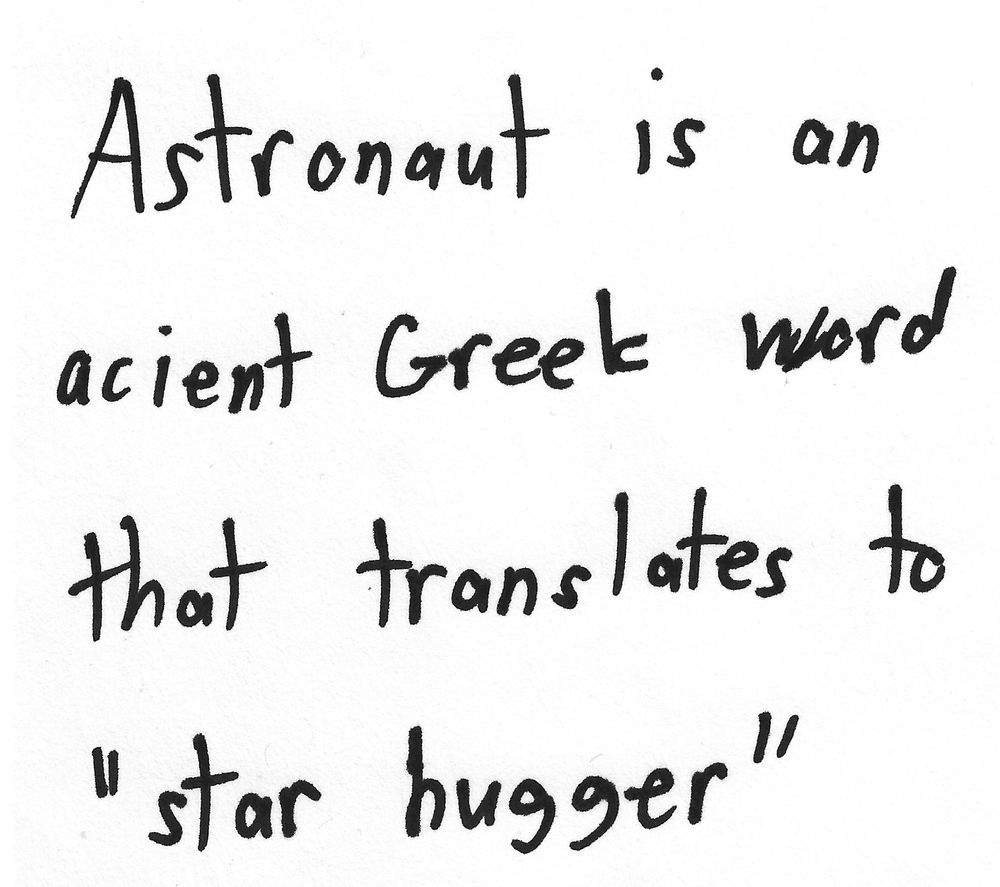 Astronaut is an
acient Greek word
that translates to
"star hugger"